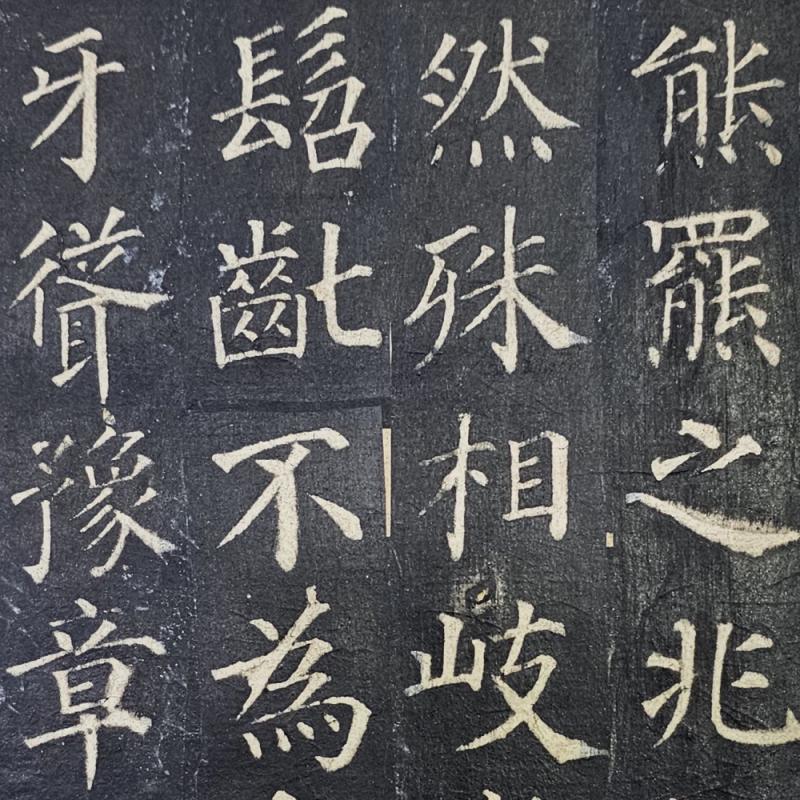 熊羆之兆
然殊相岐
髫齓不為
牙聳豫章